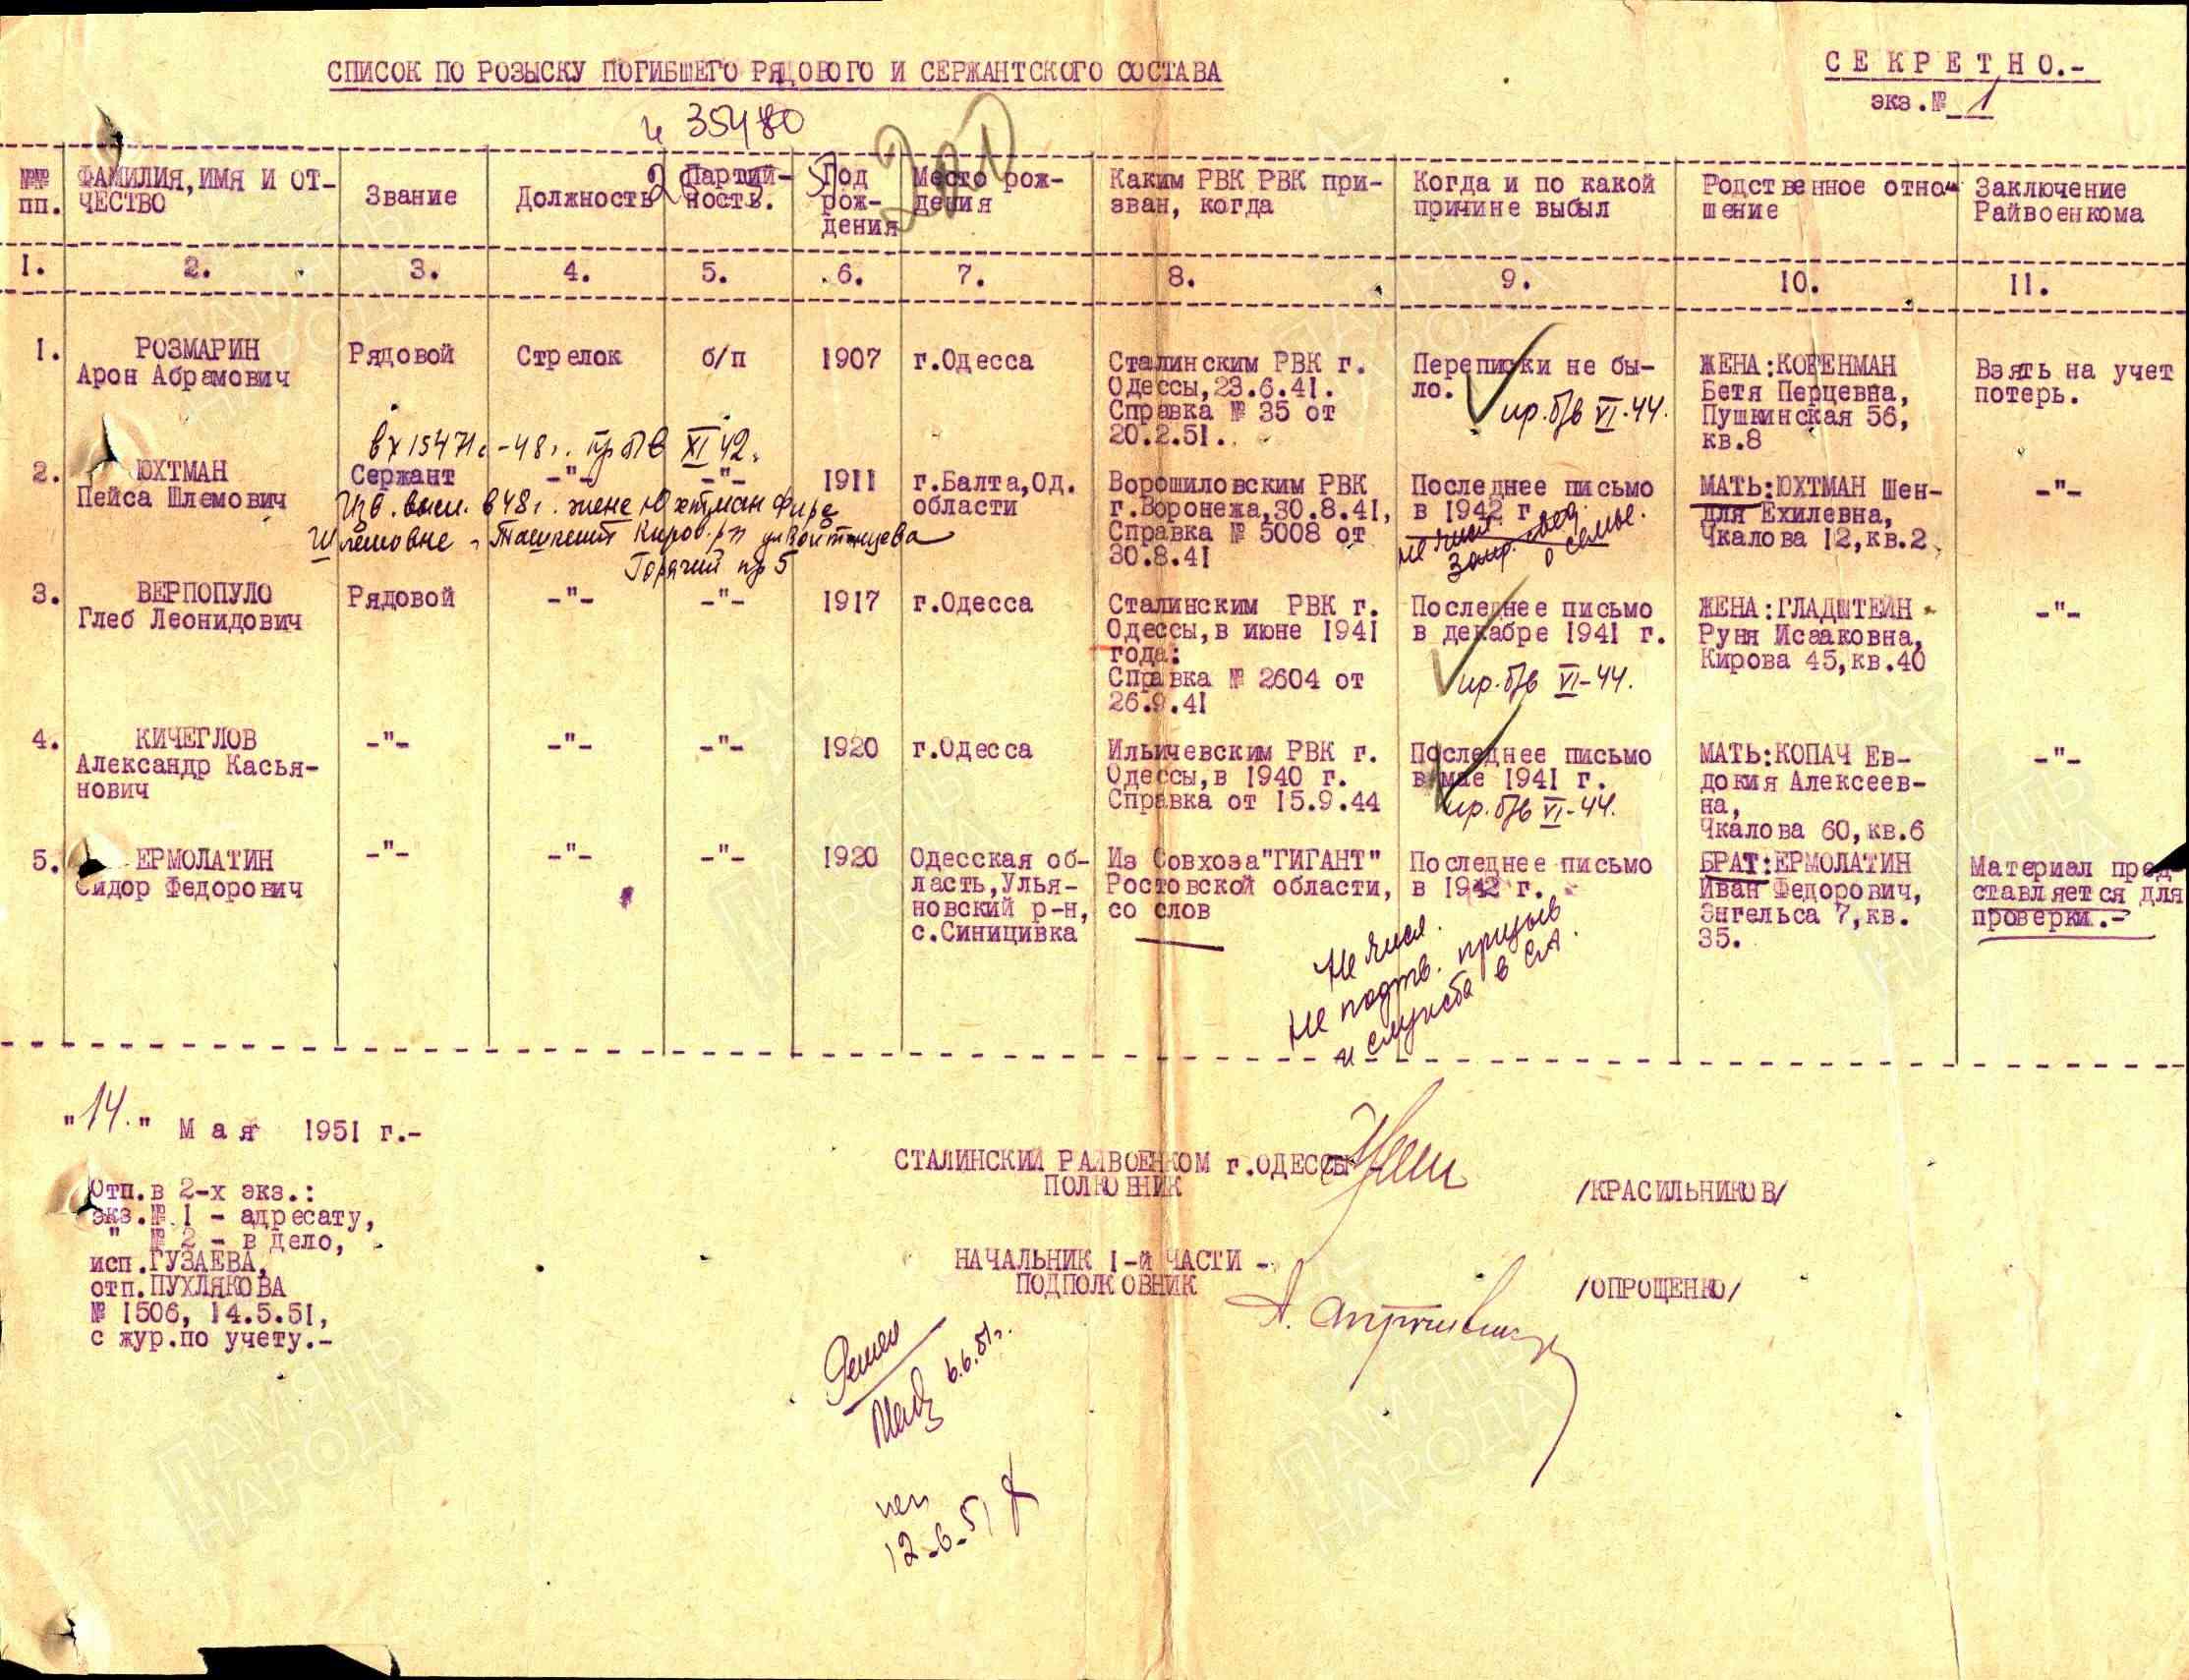 СПИСОК ПО РОЗЫСКУ ПОГИБШЕГО РЯДОВОГО И СЕРЖАНТСКОГО СОСТАВА
СЕКРЕТНО.-
экз.№ 1
35480
№№ пп.
ФАМИЛИЯ, ИМЯ И ОТ-
ЧЕСТВО
Звание
Должность
Партий-
ность.
Год
рож-
дения
Место рож-
дения
Каким РВК РВК при-
зван, когда
Когда и по какой
причине выбыл
Родственное отно-
шение
Заключение
Райвоенкома
1. 2. 3. 4. 5. 6. 7. 8. 9. 10. 11.
1.
РОЗМАРИН
Арон Абрамович
Рядовой
Стрелок
б/п
1907
г.Одесса
Сталинским РВК г.
Одессы,23.6.41.
Справка № 35 от
20.2.51.
Переписки не бы-
ло.
пр. б/в VI-44.
ЖЕНА:КОГЕНМАН
Бетя Перцевна,
Пушкинская 56,
кв.8
Взять на учет
потерь.
вх 15471с -48г. пр б/в XI 42.
2.
ЮХТМАН
Пейса Шлемович
Сержант
-"-
-"-
1911
г.Балта,Од.
области
Ворошиловским РВК
г.Воронежа,30.8.41,
Справка № 5008 от
30.8.41
Последнее письмо
в 1942 г.
не числ.
Запр. свед.
о семье.
МАТЬ:ЮХТМАН Шен-
для Ехилевна,
Чкалова 12,кв.2
-"-
Изв. высл. в 48г. жене Юхтман Фире
Шлемовне - Ташкент Киров. р-н
Горячий пр 5
3.
ВЕРПОПУЛО
Глеб Леонидович
Рядовой
-"-
-"-
1917
г.Одесса
Сталинским РВК г.
Одессы,в июне 1941
года:
Справка № 2604 от
26.9.41
Последнее письмо
в декабре 1941 г.
пр. б/в VI-44.
ЖЕНА:ГЛАДШТЕЙН
Руня Исааковна,
Кирова 45,кв.40
-"-
4.
КИЧЕГЛОВ
Александр Касья-
нович
-"-
-"-
-"-
1920
г.Одесса
Ильичевским РВК г.
Одессы,в 1940 г.
Справка от 15.9.44
Последнее письмо
в мае 1941 г.
пр. б/в VI-44.
МАТЬ:КОПАЧ Ев-
докия Алексеев-
на,
Чкалова 60,кв.6
-"-
5.
ЕРМОЛАТИН
Сидор Федорович
-"-
-"-
-"-
1920
Одесская об-
ласть,Улья-
новский р-н,
с.Синицивка
Из Совхоза"ГИГАНТ"
Ростовской области,
со слов
Последнее письмо
в 1942 г.
Не числ.
Не подтв. призыв
и служба в СА.
БРАТ:ЕРМОЛАТИН
Иван Федорович,
Энгельса 7,кв.
35.
Материал пред-
ставляется для
проверки.-
"14." Мая 1951 г.-
СТАЛИНСКИЙ РАЙВОЕНКОМ г.ОДЕССЫ
ПОЛКОВНИК
/КРАСИЛЬНИКОВ/
НАЧАЛЬНИК 1-й ЧАСТИ -
ПОДПОЛКОВНИК
/ОПРОЩЕНКО/
Отп.в 2-х экз.:
экз.№ 1 - адресату,
" № 2 - в дело,
исп.ГУЗАЕВА,
отп.ПУХЛЯКОВА
№ 1506, 14.5.51,
с жур.по учету.-
6.6.51г.
12-6-51
ПАМЯТЬ
НАРОДА